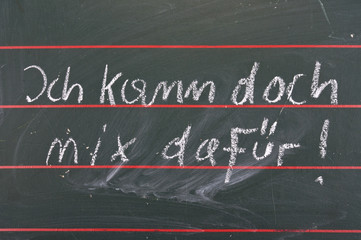 Ich kann doch
mix dafür!